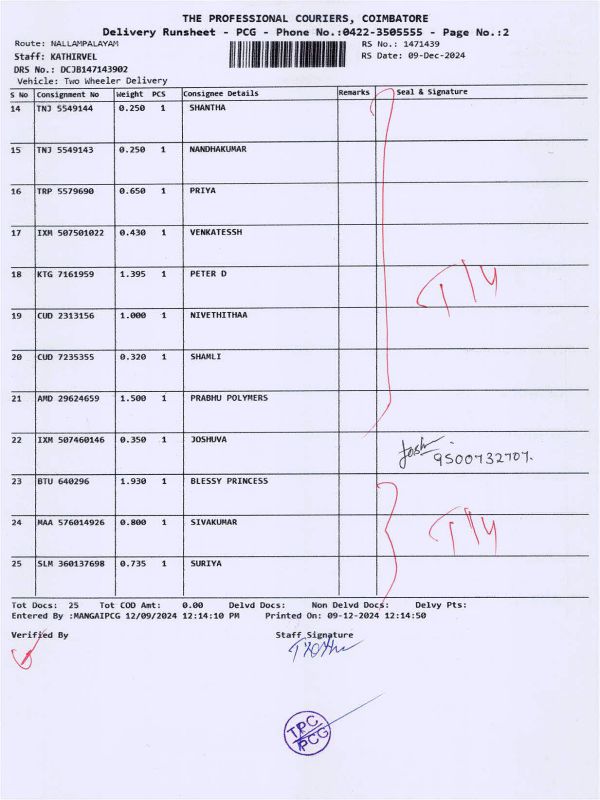 THE PROFESSIONAL COURIERS, COIMBATORE
Delivery Runsheet - PCG - Phone No.:0422-3505555 - Page No.:2
Route: NALLAMPALAYAM RS No.: 1471439
Staff: KATHIRVEL RS Date: 09-Dec-2024
DRS No.: DCJB147143902
Vehicle: Two Wheeler Delivery
S No Consignment No Weight PCS Consignee Details Remarks Seal & Signature
14 TNJ 5549144 0.250 1 SHANTHA
15 TNJ 5549143 0.250 1 NANDHAKUMAR
16 TRP 5579690 0.650 1 PRIYA
17 IXM 507501022 0.430 1 VENKATESSH
18 KTG 7161959 1.395 1 PETER D
19 CUD 2313156 1.000 1 NIVETHITHAA
20 CUD 7235355 0.320 1 SHAMLI
21 AMD 29624659 1.500 1 PRABHU POLYMERS
22 IXM 507460146 0.350 1 JOSHUVA
9500732707.
23 BTU 640296 1.930 1 BLESSY PRINCESS
24 MAA 576014926 0.800 1 SIVAKUMAR
25 SLM 360137698 0.735 1 SURIYA
Tot Docs: 25 Tot COD Amt: 0.00 Delvd Docs: Non Delvd Docs: Delvy Pts:
Entered By :MANGAIPCG 12/09/2024 12:14:10 PM Printed On: 09-12-2024 12:14:50
Verified By Staff Signature
TPC
PCG